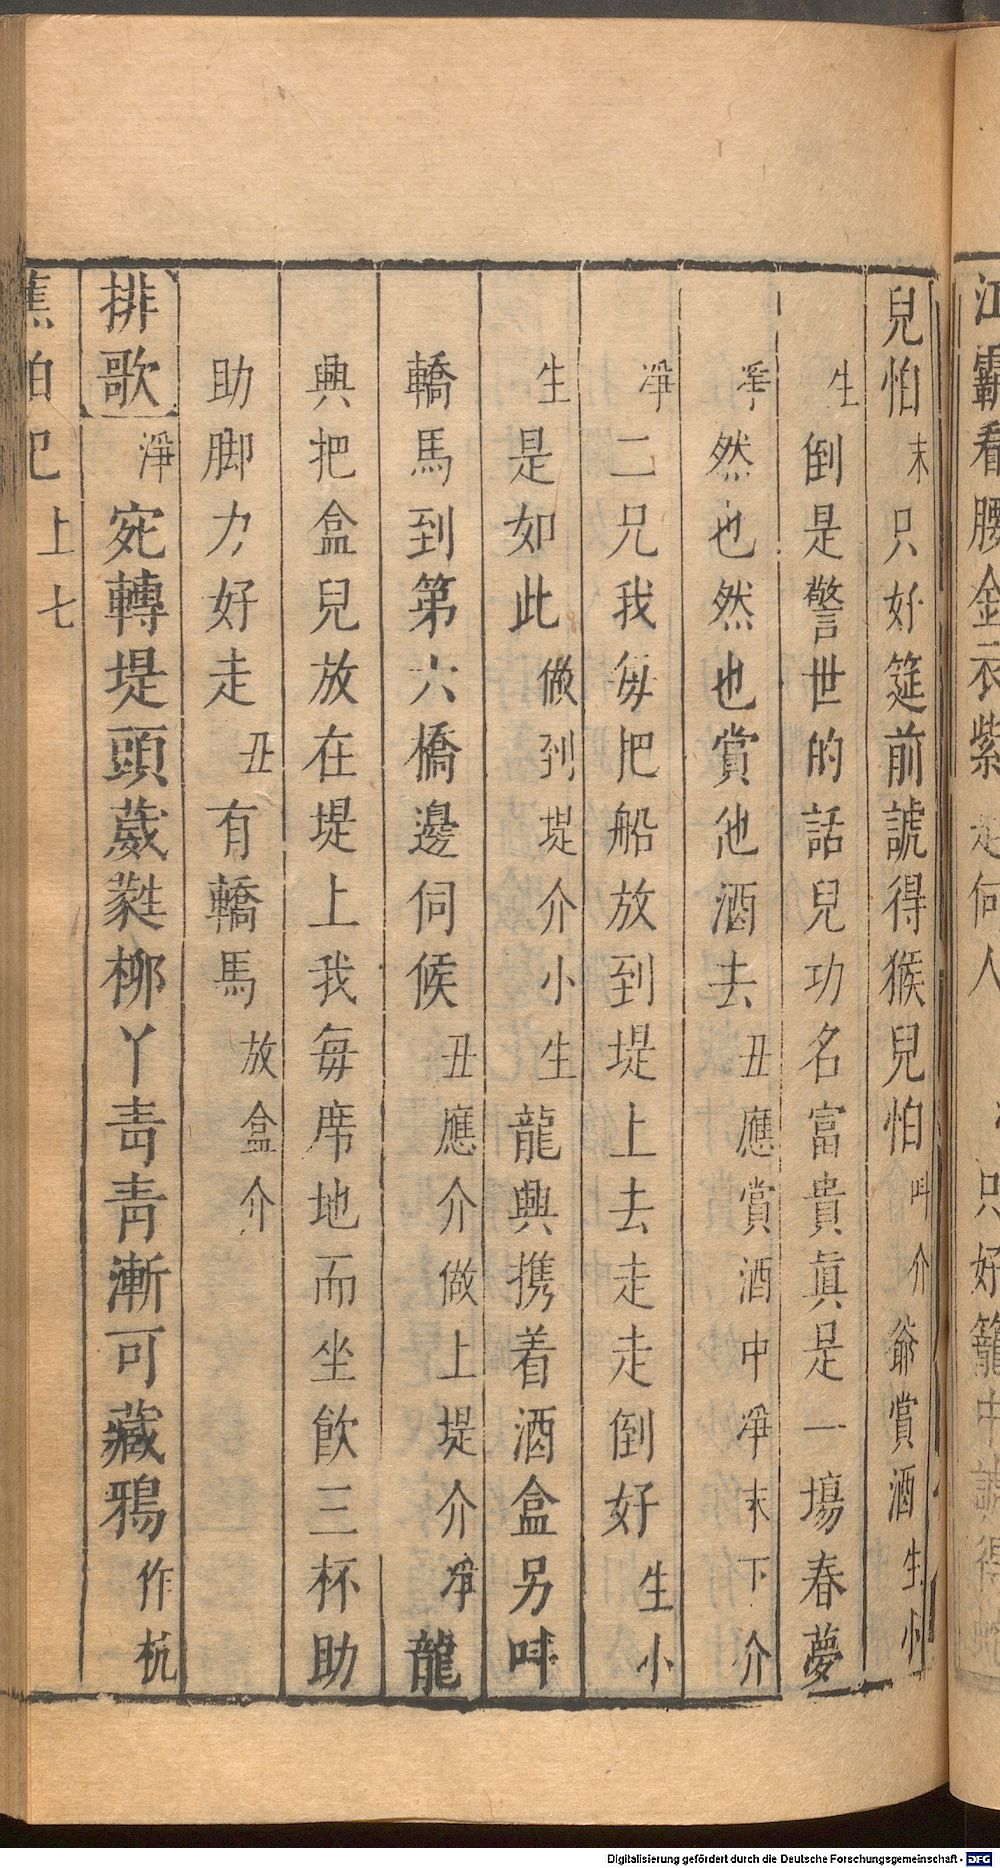 江霸看腰金衣紫 是何人 只好籠中諕得
兒怕末只好筵前諕得猴兒怕叫介爺賞酒生小
生倒是警世的話兒功名富貴眞是一塲春夢
淨然也然也賞他酒去丑應賞酒中淨末下介
淨二兄我每把船放到堤上去走走倒好生小
生是如此做到堤介小生龍興携着酒盒另叫
轎馬到第六橋邊伺候丑應介做上堤介淨龍
興把盒兒放在堤上我每席地而坐飮三杯助
助脚力好走丑有轎馬放盒介
排歌淨宛轉堤頭葳蕤柳丫青青漸可藏鴉作杭
上七
Digitalisierung gefördert durch die Deutsche Forschungsgemeinschaft - DFG